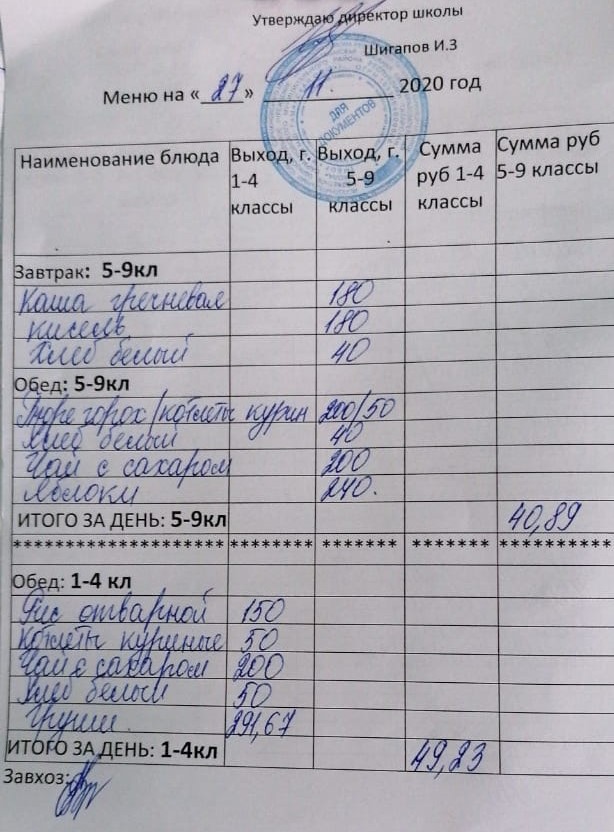 Утверждаю директор школы
Шигапов И.З
Меню на « 27 » 11. 2020 год
ДЛЯ ДОКУМЕНТОВ
Наименование блюда Выход, г. 1-4 классы Выход, г. 5-9 классы Сумма руб 1-4 классы Сумма руб 5-9 классы
Завтрак: 5-9кл
Каша гречневая 180
кисель 180
Хлеб белый 40
Обед: 5-9кл
Пюре горох/котлеты курин 200/50
Хлеб белый 40
Чай с сахаром 200
Яблоки 240.
ИТОГО ЗА ДЕНЬ: 5-9кл 40,89
********************* ******** ******* ******* **********
Обед: 1-4 кл
Рис отварной 150
Котлеты куриные 50
Чай с сахаром 200
Хлеб белый 50
Груши 291,67
ИТОГО ЗА ДЕНЬ: 1-4кл 49,23
Завхоз: